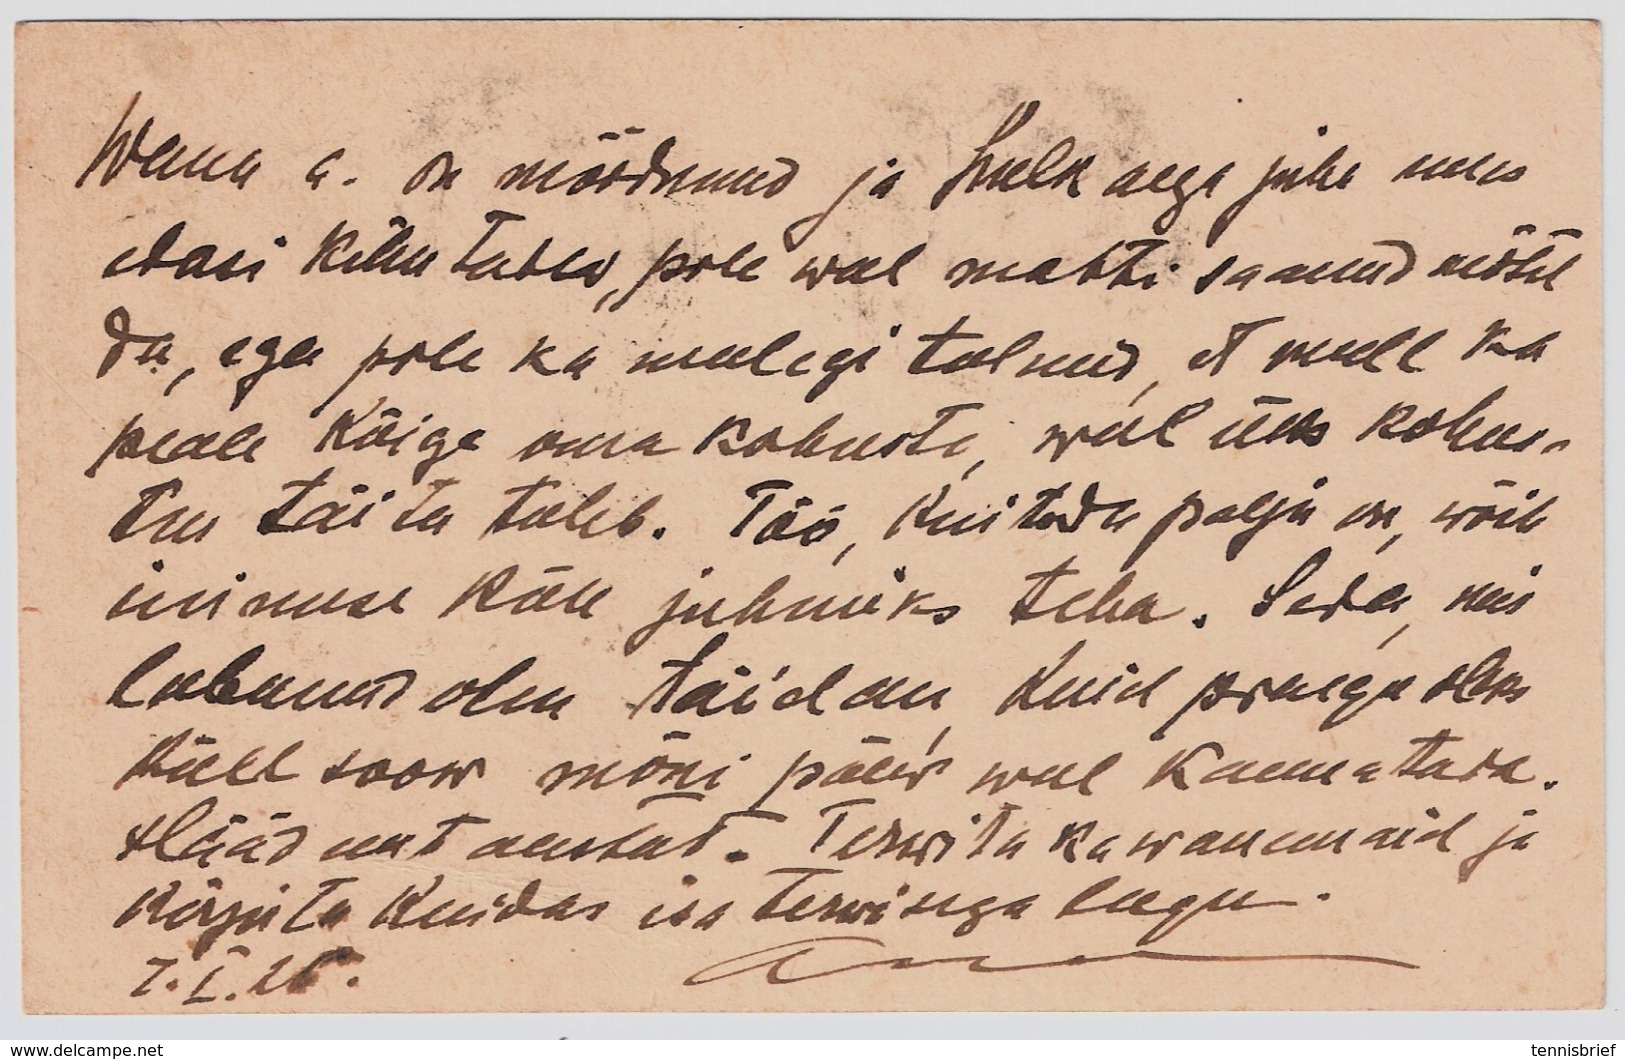 Wana a. on möödunud ja hulk aega juba uues
edasi kihutades, pole weel mahti saanud mõtel
da, ega pole ka meelegi tulnud, et mull ka
peale kõige oma kohuste, weel üks kohus-
tus täita tuleb. Töö, kui teda palju on, wõib
inimese käte juhmiks teha. Seda, mis
lubanud olen täidan, kuid praegu oleks
küll soow mõni päew weel kannatada.
Hääd uut aastat. Terwita ka wanemaid ja
kirjuta kuidas isa terwisega lugu.
7.I.26.
www.delcampe.net
tennisbrief